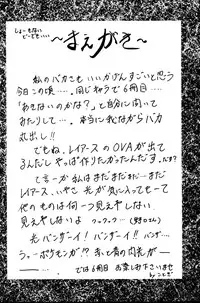 しょーもない
ピーでも....
〜まえがき〜
私のバカさもいいかげんすごいと思う
今日この頃 ..... 同じネタで6冊目.....
「あきないのかな?」と自分に問いて
みたりして..... 本当に我ながらバカ
丸出し!!
でもね、レイアースのOVAが出て
るんだし やっぱ作りたかったんだす。
て言ーか 私はまだまだまだーまだ
レイアース、いやさ 光が気に入ってて
他のものは何一つ見えやしない
見えやしないよ フッフッフ...
光バンザーイ! バンザーイ!! バンザ...
うぁーポケモンが!? 赤と青の閃光がー
では6冊目 お楽しみ下さいませ
by